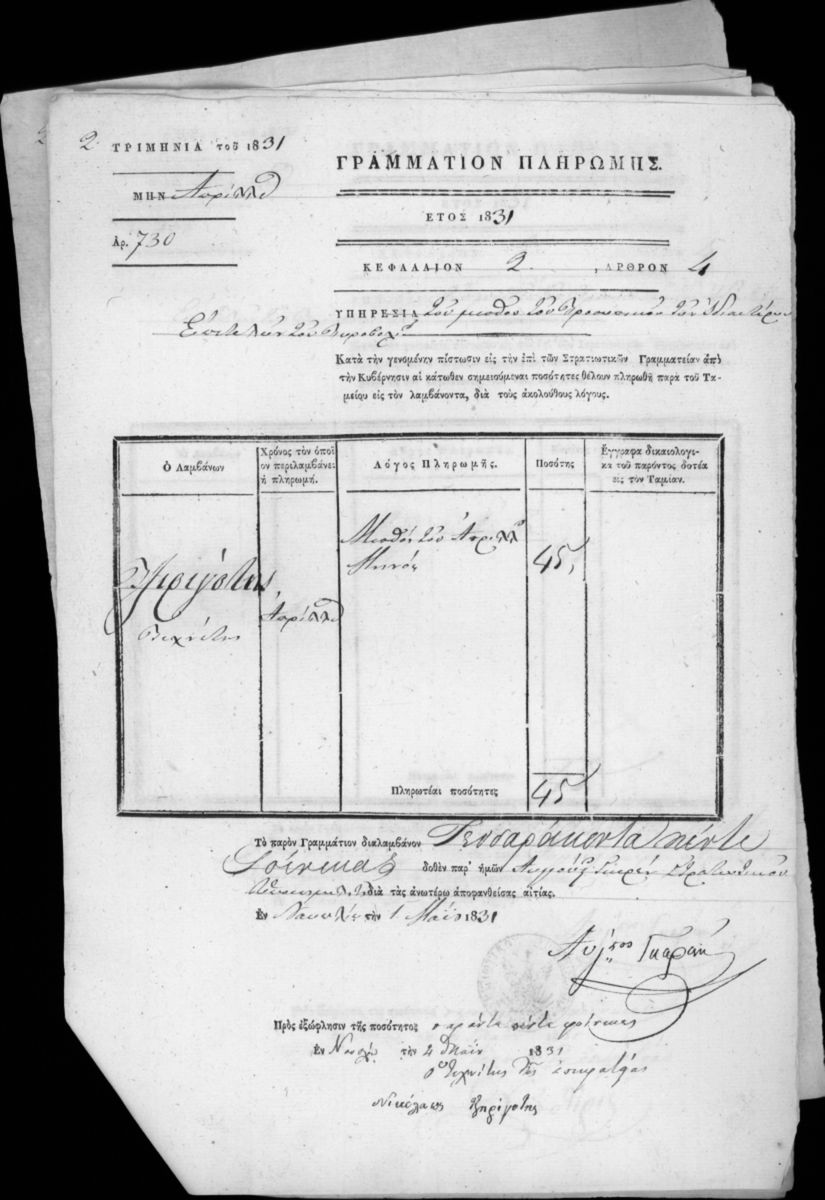 2 ΤΡΙΜΗΝΙΑ τοῦ 1831
ΜΗΝ Ἀπρίλλιος
Ἀρ. 730
ΓΡΑΜΜΑΤΙΟΝ ΠΛΗΡΩΜΗΣ.
ΕΤΟΣ 1831
ΚΕΦΑΛΑΙΟΝ 2 , ΑΡΘΡΟΝ 4
ΥΠΗΡΕΣΙΑ τοῦ μισθοῦ τοῦ προσωπικοῦ τῶν
τοῦ Πυροβολ
Κατὰ τὴν γενομένην πίστωσιν εἰς τὴν ἐπὶ τῶν Στρατιωτικῶν Γραμματείαν ἀπὸ
τὴν Κυβέρνησιν αἱ κάτωθεν σημειούμεναι ποσότητες θέλουν πληρωθῆ παρὰ τοῦ Τα-
μείου εἰς τὸν λαμβάνοντα, διὰ τοὺς ἀκολούθους λόγους.
Ὁ Λαμβάνων
Χρόνος τὸν ὁποῖ
ον περιλαμβάνει
ἡ πληρωμή.
Λόγος Πληρωμῆς.
Ποσότης
Ἔγγραφα δικαιολογι-
κὰ τοῦ παρόντος δοτέα
εἰς τὸν Ταμίαν.
Μισθὸς τοῦ Ἀπριλλ
Μηνός
45,
Τζιριγότης
Ἀπρίλλιος
τεχνίτης
Πληρωτέαι ποσότητες 45
Τὸ παρὸν Γραμμάτιον διαλαμβάνον Τεσσαράκοντα πέντε
Φοίνικας δοθὲν παρ' ἡμῶν Στρατιωτικοῦ
διὰ τὰς ἀνωτέρω ἀποφανθείσας αἰτίας.
Ἐν Ναυπλίῳ τὴν 1 Μαΐου 1831
Πρὸς ἐξώφλησιν τῆς ποσότητος σαράντα πέντε φοίνικας
Ἐν Ναυπλίῳ τὴν 2 Μαΐ 1831
ὁ τεχνίτης
Νικόλαος τζηριγότης